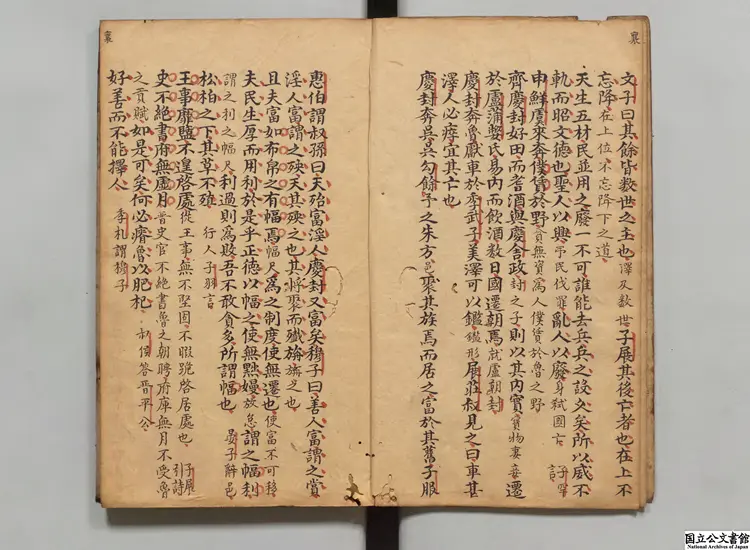 襄
文子曰其餘皆数世之主也 澤及数世 子展其後亡者也在上不
忘降 在上位不忘降下之道
天生五材民並用之廢一不可誰能去兵兵之設久矣所以威不
軌而昭文德也聖人以興 亂人以廢
申鮮虞來奔僕賃於野
齊慶封好田而耆酒與慶舍政 封之子 則以其内實 遷
於盧蒲嫳氏易内而飲酒数日國遷朝焉 就盧朝封
慶封奔魯獻車於季武子美澤可以鑑 鑑形 展莊叔見之曰車甚
澤人必瘁宜其亡也
慶封奔吳吳句餘予之朱方 邑 聚其族焉而居之富於其舊子服
惠伯謂叔孫曰天殆富淫人慶封又富矣穆子曰善人富謂之賞
淫人富謂之殃天其殃之也其將聚而殲旃 旃之也
且夫富如布帛之有幅焉 幅尺 為之制度使無遷也 使富不可移
夫民生厚而用利於是乎正德以幅之使無黜嫚 放怠 謂之幅利
謂之利之幅尺 利過則為敗吾不敢貪多所謂幅也 晏子辭邑
松柏之下其草不殖 行人子羽言
王事靡盬不遑啓處 從王事無不堅固不暇跪啓居處也 子展引詩
史不絕書府無虛月 晋史官不絕書魯之朝聘府庫無月不受魯
之貢賦 如是可矣何必瘠魯以肥杞 叔侯答晋平公
好善而不能擇人 季札謂穆子
襄
国立公文書館
National Archives of Japan